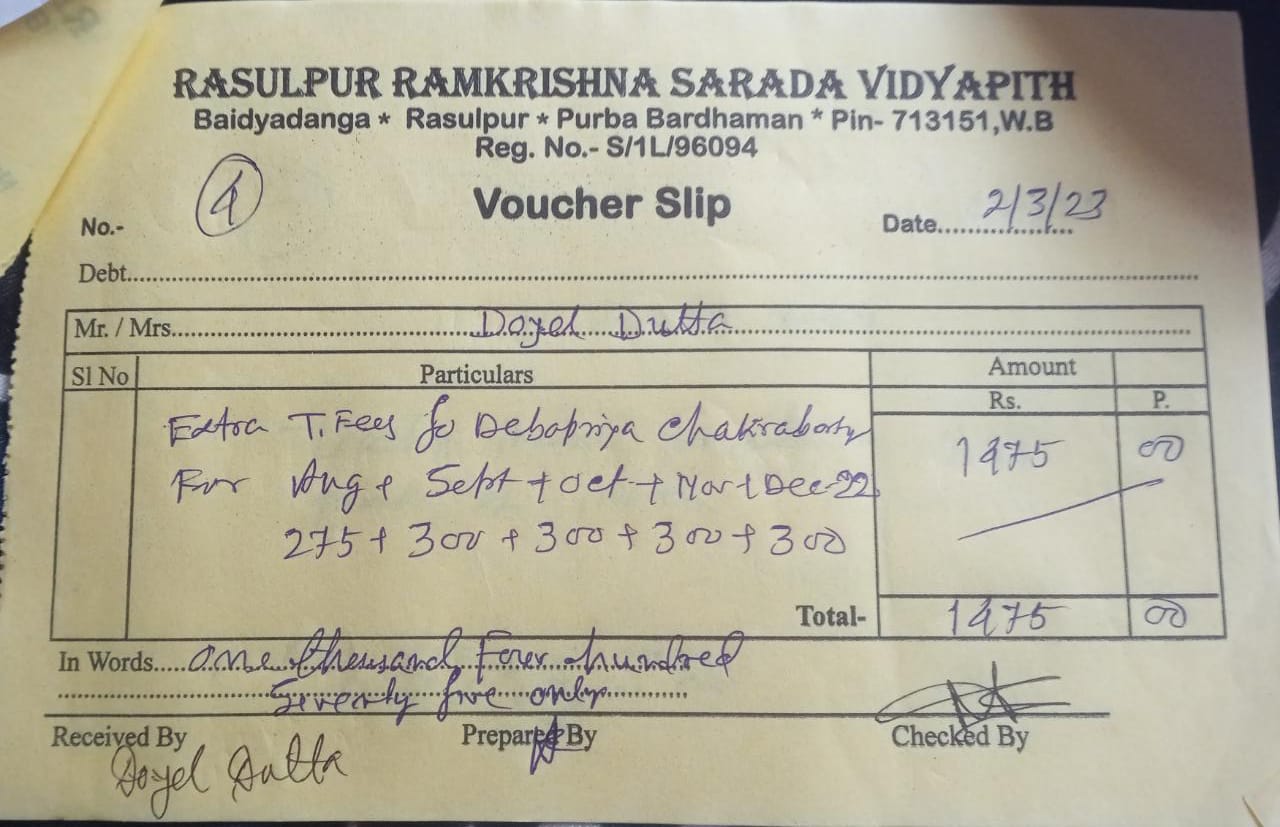 RASULPUR RAMKRISHNA SARADA VIDYAPITH
Baidyadanga * Rasulpur * Purba Bardhaman * Pin- 713151,W.B
Reg. No.- S/1L/96094
Voucher Slip
No.- 4
Date.................. 2/3/23
Debt..........
Mr. / Mrs.......... Doyel Dutta
Sl No Particulars Amount
Rs. P.
Extra T. Fees fo Debapriya Chakraborty 1475 00
For Aug + Sept + Oct + Nov + Dec-22
275 + 300 + 300 + 300 + 300
Total- 1475 00
In Words..... One thousand Four hundred
Seventy five only
Received By Prepared By Checked By
Doyel Dutta